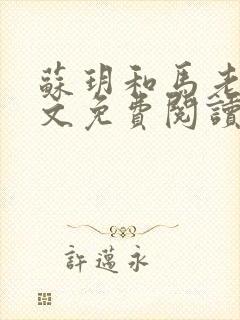 蘇玥和馬老
文免費閱讀
許邁永